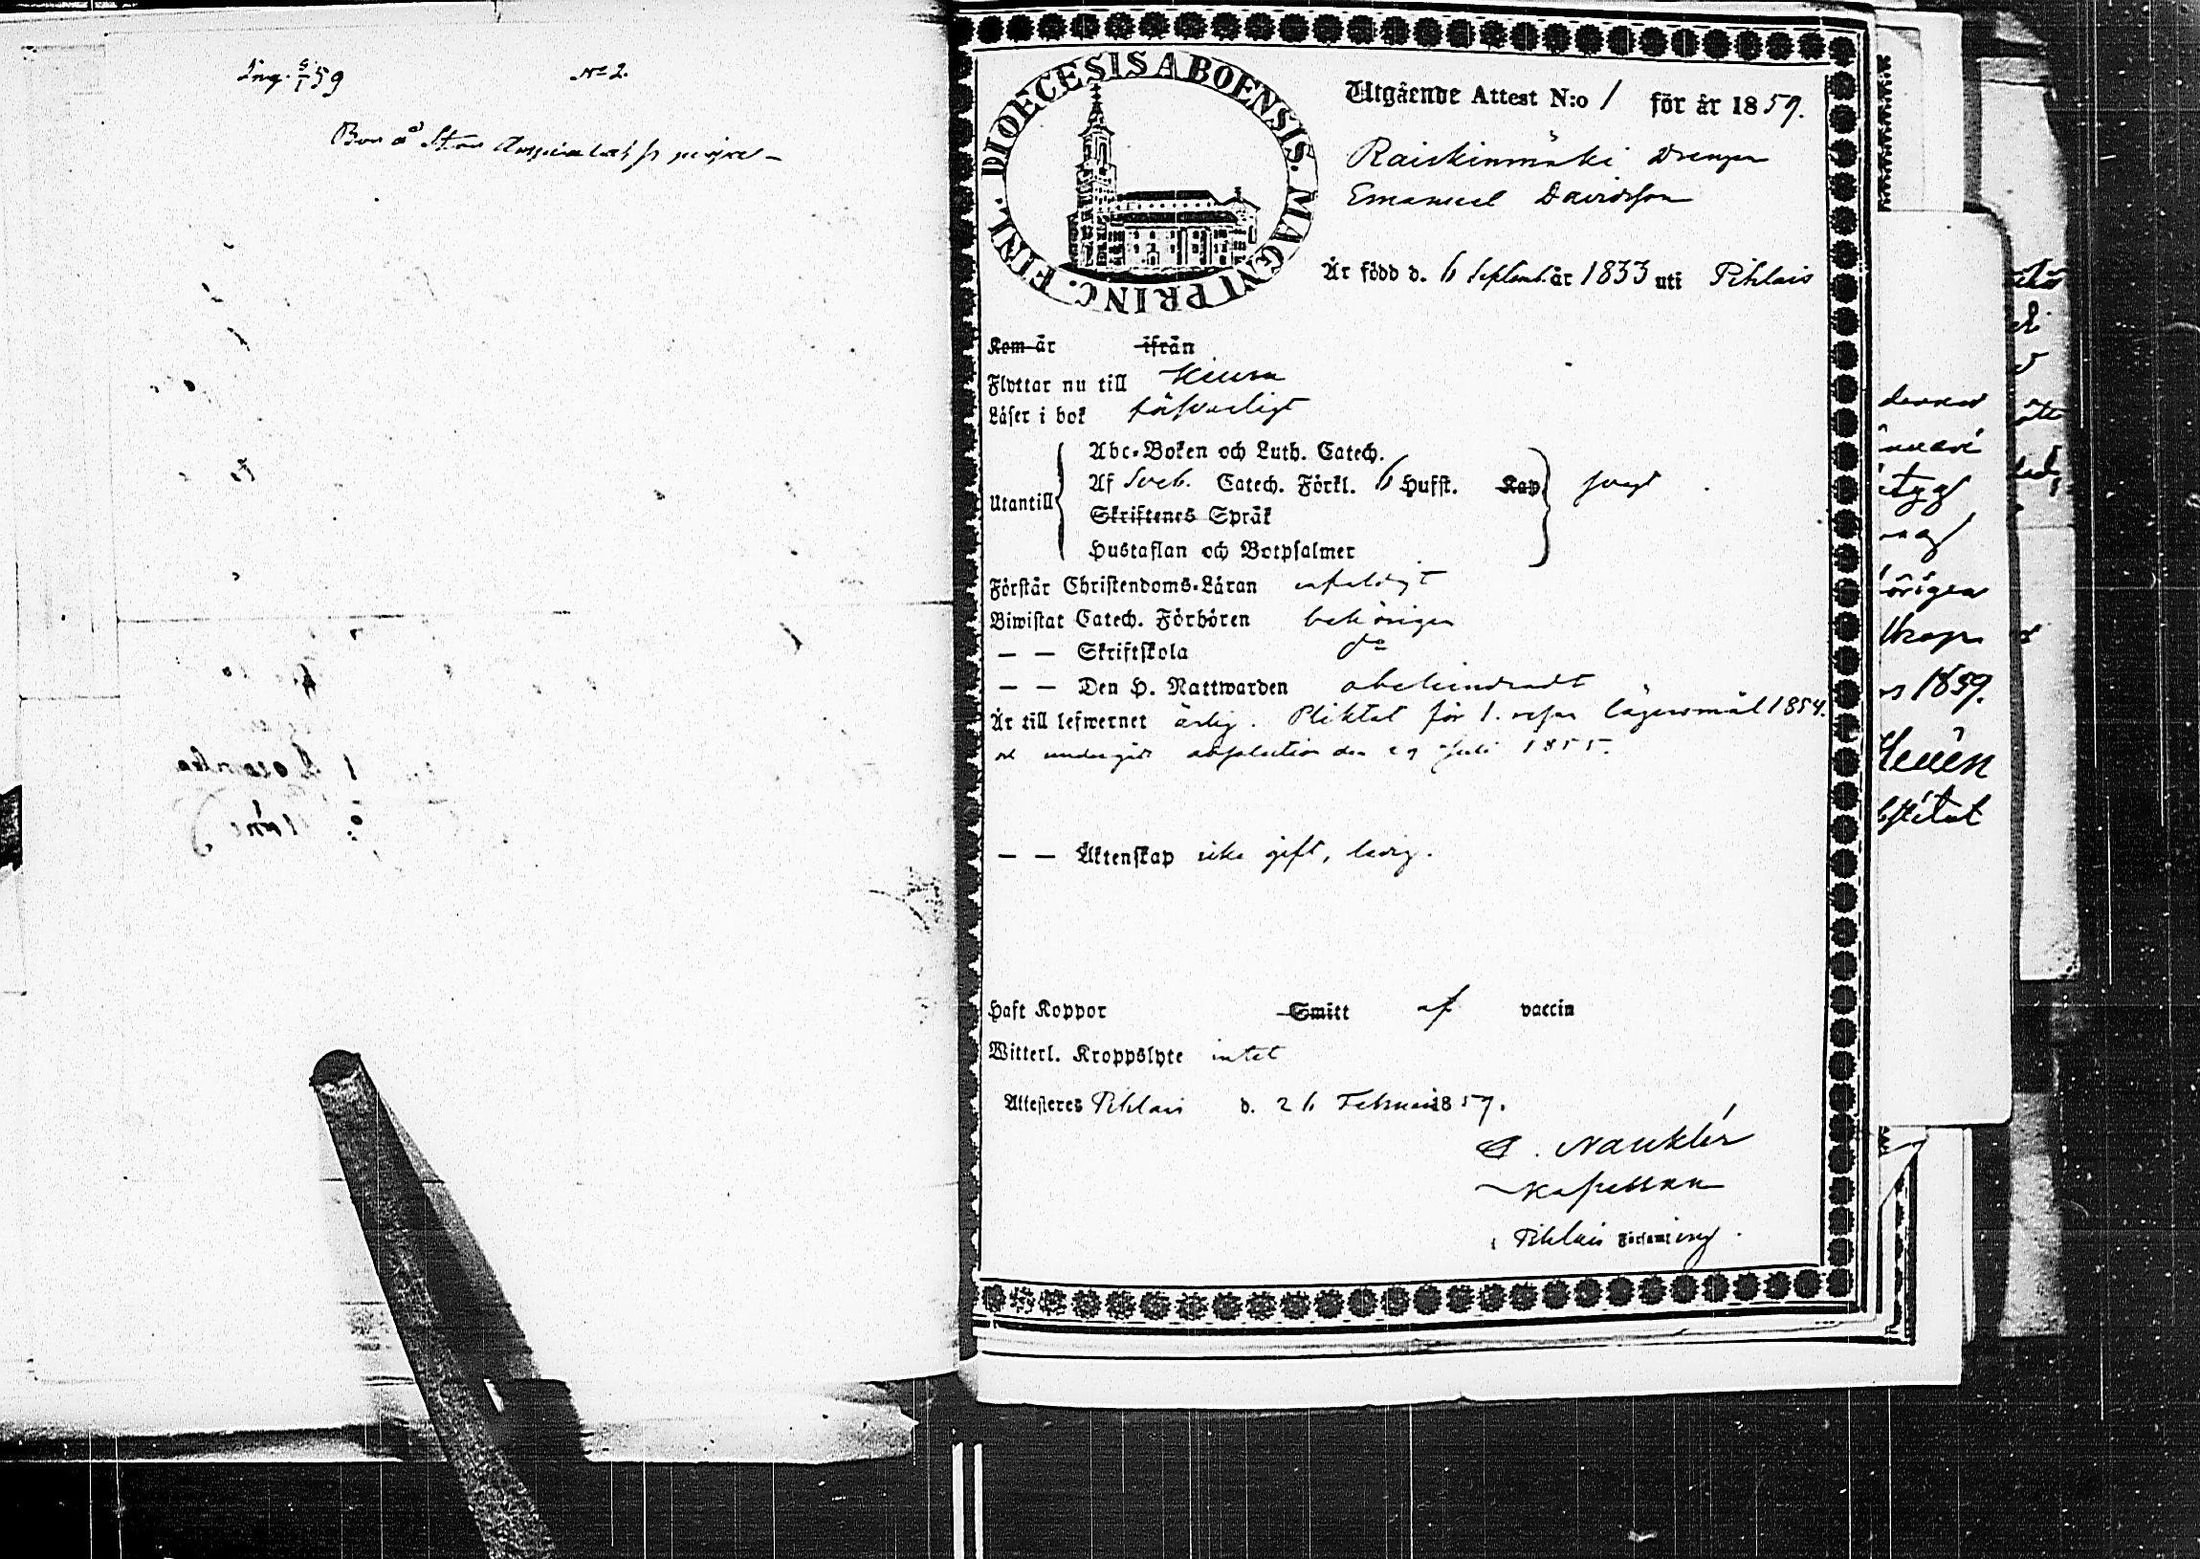 Ing. 5/1 59 No 2.
Bor å Stor
DIOECESIS ABOENSIS. MAGNI PRINC. FINL.
Utgående Attest N:o 1 för år 1859.
Raiskinmäki Drengen
Emanuel Davidsson
Är född d. 6 Septemb. år 1833 uti Pihlais
Kom år ifrån
Flyttar nu till Keuru
Läser i bok försvarligt
Utantill
Abc-Boken och Luth. Catech.
Af Sveb. Catech. Förkl. 6 Hufst. Kap svagt
Skriftenes Språk
Hustaflan och Botpsalmer
Förstår Christendoms-Läran enfaldigt
Biwistat Catech. Förhören behörigen
— — Skriftskola do
— — Den H. Nattwarden obehindradt
Är till lefwernet ärlig. Pliktat för 1. resan lägersmål 1854.
och undergått absolution den 29 Juli 1855.
— — Äktenskap icke gift, ledig.
Haft Koppor Smitt af vaccin
Witterl. Kroppslyte intet
Attesteres Pihlais d. 26 Februari 1859.
Nauklér
Kapellan
i Pihlais Församling.
derned
tyg
örigen
1859.
Heuén